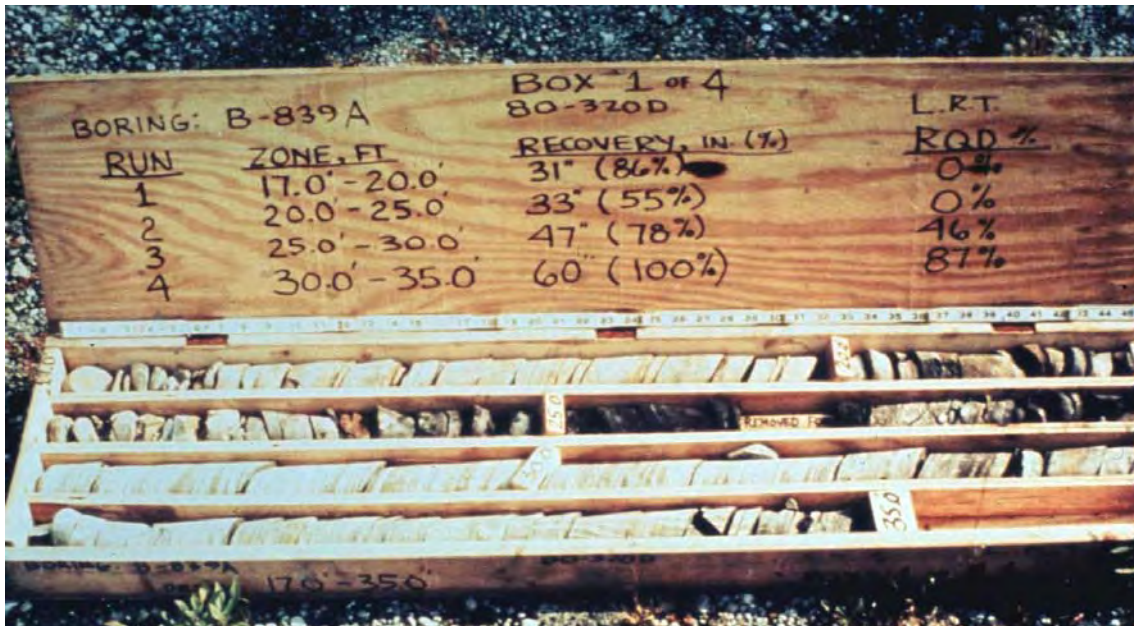 BOX 1 OF 4
BORING: B-839A 80-320D L.R.T.
RUN ZONE, FT RECOVERY, IN. (%) RQD %
1 17.0' - 20.0' 31" (86%) 0%
2 20.0' - 25.0' 33" (55%) 0%
3 25.0' - 30.0' 47" (78%) 46%
4 30.0' - 35.0' 60" (100%) 87%
25.0
REMOVED
30.0
35.0
BORING: B-839A 80-320D
17.0' - 35.0'